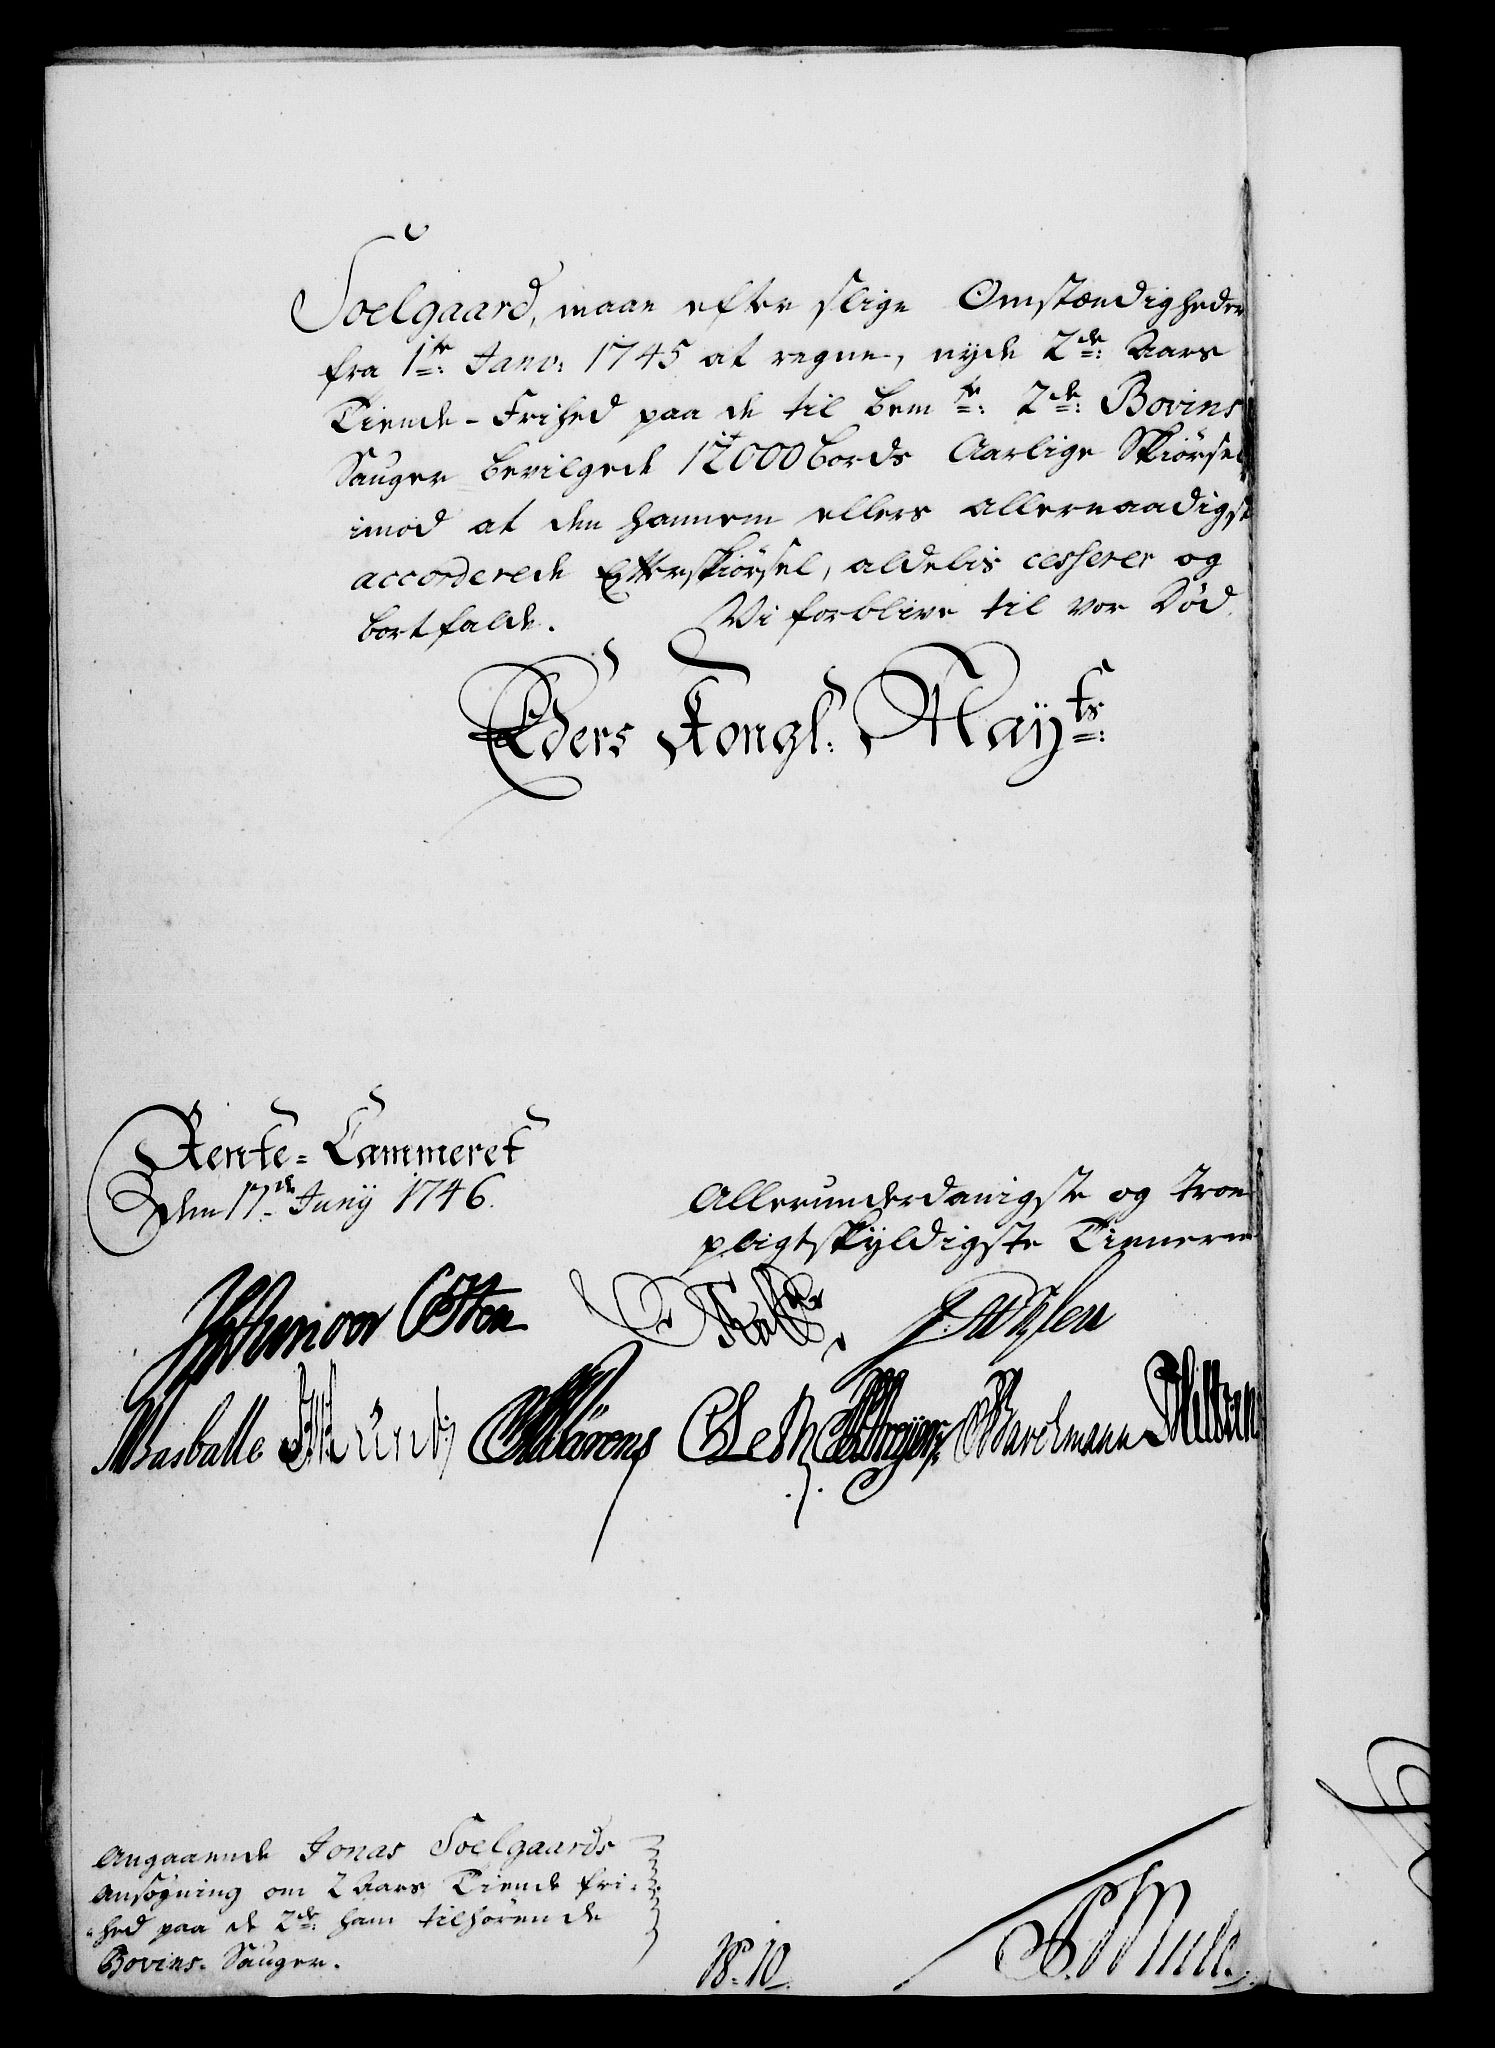 Soelgaard, maae efter slige Omstændigheder
fra 1te: Janv: 1745 at regne, nyde 2de: Aars
Tiende-Frihed paa de til bemte: 2de: Bovins
Sauger bevilgede 12000 bords Aarlige Skiørsel
imod at den hannem ellers allernaadigst
accorderede Efterskiørsel, aldelis cesserer og
bortfalder. Vi forblive til vor Død
Eders Kongl: Mayts:
Rente-Cammeret
den 17de Junij 1746.
Allerunderdanigste og troe
pligtskyldigste Tienere
Masballe
C Leth
Barchmann
Angaaende Jonas Soelgaards
Ansøgning om 2 Aars Tiende fri-
hed paa de 2de: ham tilhørende
Bovins-Sauger.
No: 10.